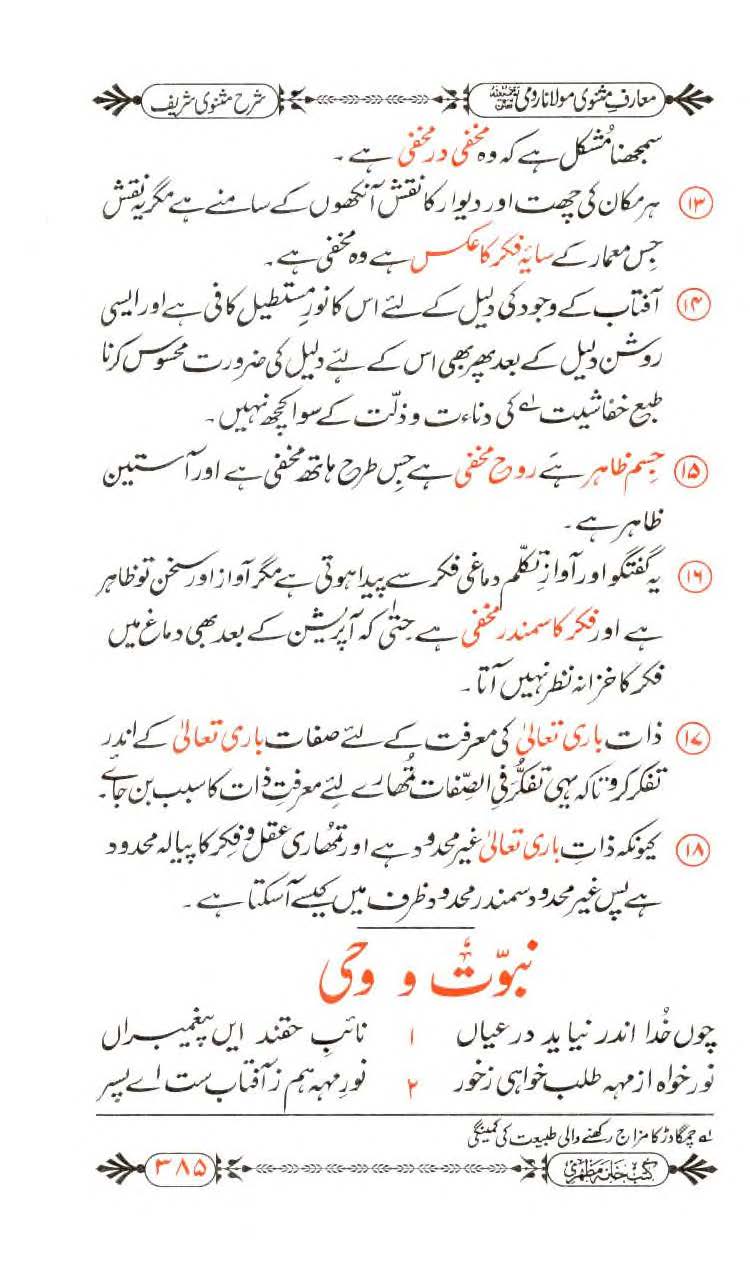 معارفِ مثنوی مولانا رومی رحمۃ اللہ علیہ
شرح مثنوی شریف
سمجھنا مُشکل ہے کہ وہ مخفی در مخفی ہے۔
۱۳ ہر مکان کی چھت اور دیوار کا نقش آنکھوں کے سامنے ہے مگر یہ نقش
جِس معمار کے سایۂ فکر کا عکس ہے وہ مخفی ہے۔
۱۴ آفتاب کے وجود کی دلیل کے لئے اس کا نورِ مستطیل کافی ہے اور ایسی
روشن دلیل کے بعد پھر بھی اس کے لئے دلیل کی ضرورت محسوس کرنا
طبع خفاشیت لہ کی دناءت و ذلّت کے سوا کچھ نہیں۔
۱۵ جِسم ظاہر ہے روح مخفی ہے جِس طرح ہاتھ مخفی ہے اور آستین
ظاہر ہے۔
۱۶ یہ گفتگو اور آوازِ تکلّم دماغی فکر سے پیدا ہوتی ہے مگر آواز اور سخن تو ظاہر
ہے اور فکر کا سمندر مخفی ہے حتیٰ کہ آپریشن کے بعد بھی دماغ میں
فکر کا خزانہ نظر نہیں آتا۔
۱۷ ذات باری تعالیٰ کی معرفت کے لئے صفات باری تعالیٰ کے اندر
تفکر کرو تاکہ یہی تفکُّر فی الصِّفات تُمھارے لئے معرفتِ ذات کا سبب بن جائے۔
۱۸ کیونکہ ذاتِ باری تعالیٰ غیر محدود ہے اور تمھاری عقل و فِکر کا پیالہ محدود
ہے پس غیر محدود سمندر محدود ظرف میں کیسے آسکتا ہے۔
نبوّت و وحی
چوں خُدا اندر نیاید در عیاں ۱ نائبِ حقند ایں پیغمبراں
نور خواہ از مہہ طلب خواہی زخور ۲ نورِ مہہ ہم ز آفتاب ست اے پسر
لہ چمگادڑ کا مزاج رکھنے والی طبیعت کی کمینگی
کتب خانہ مظہری
۳۸۵